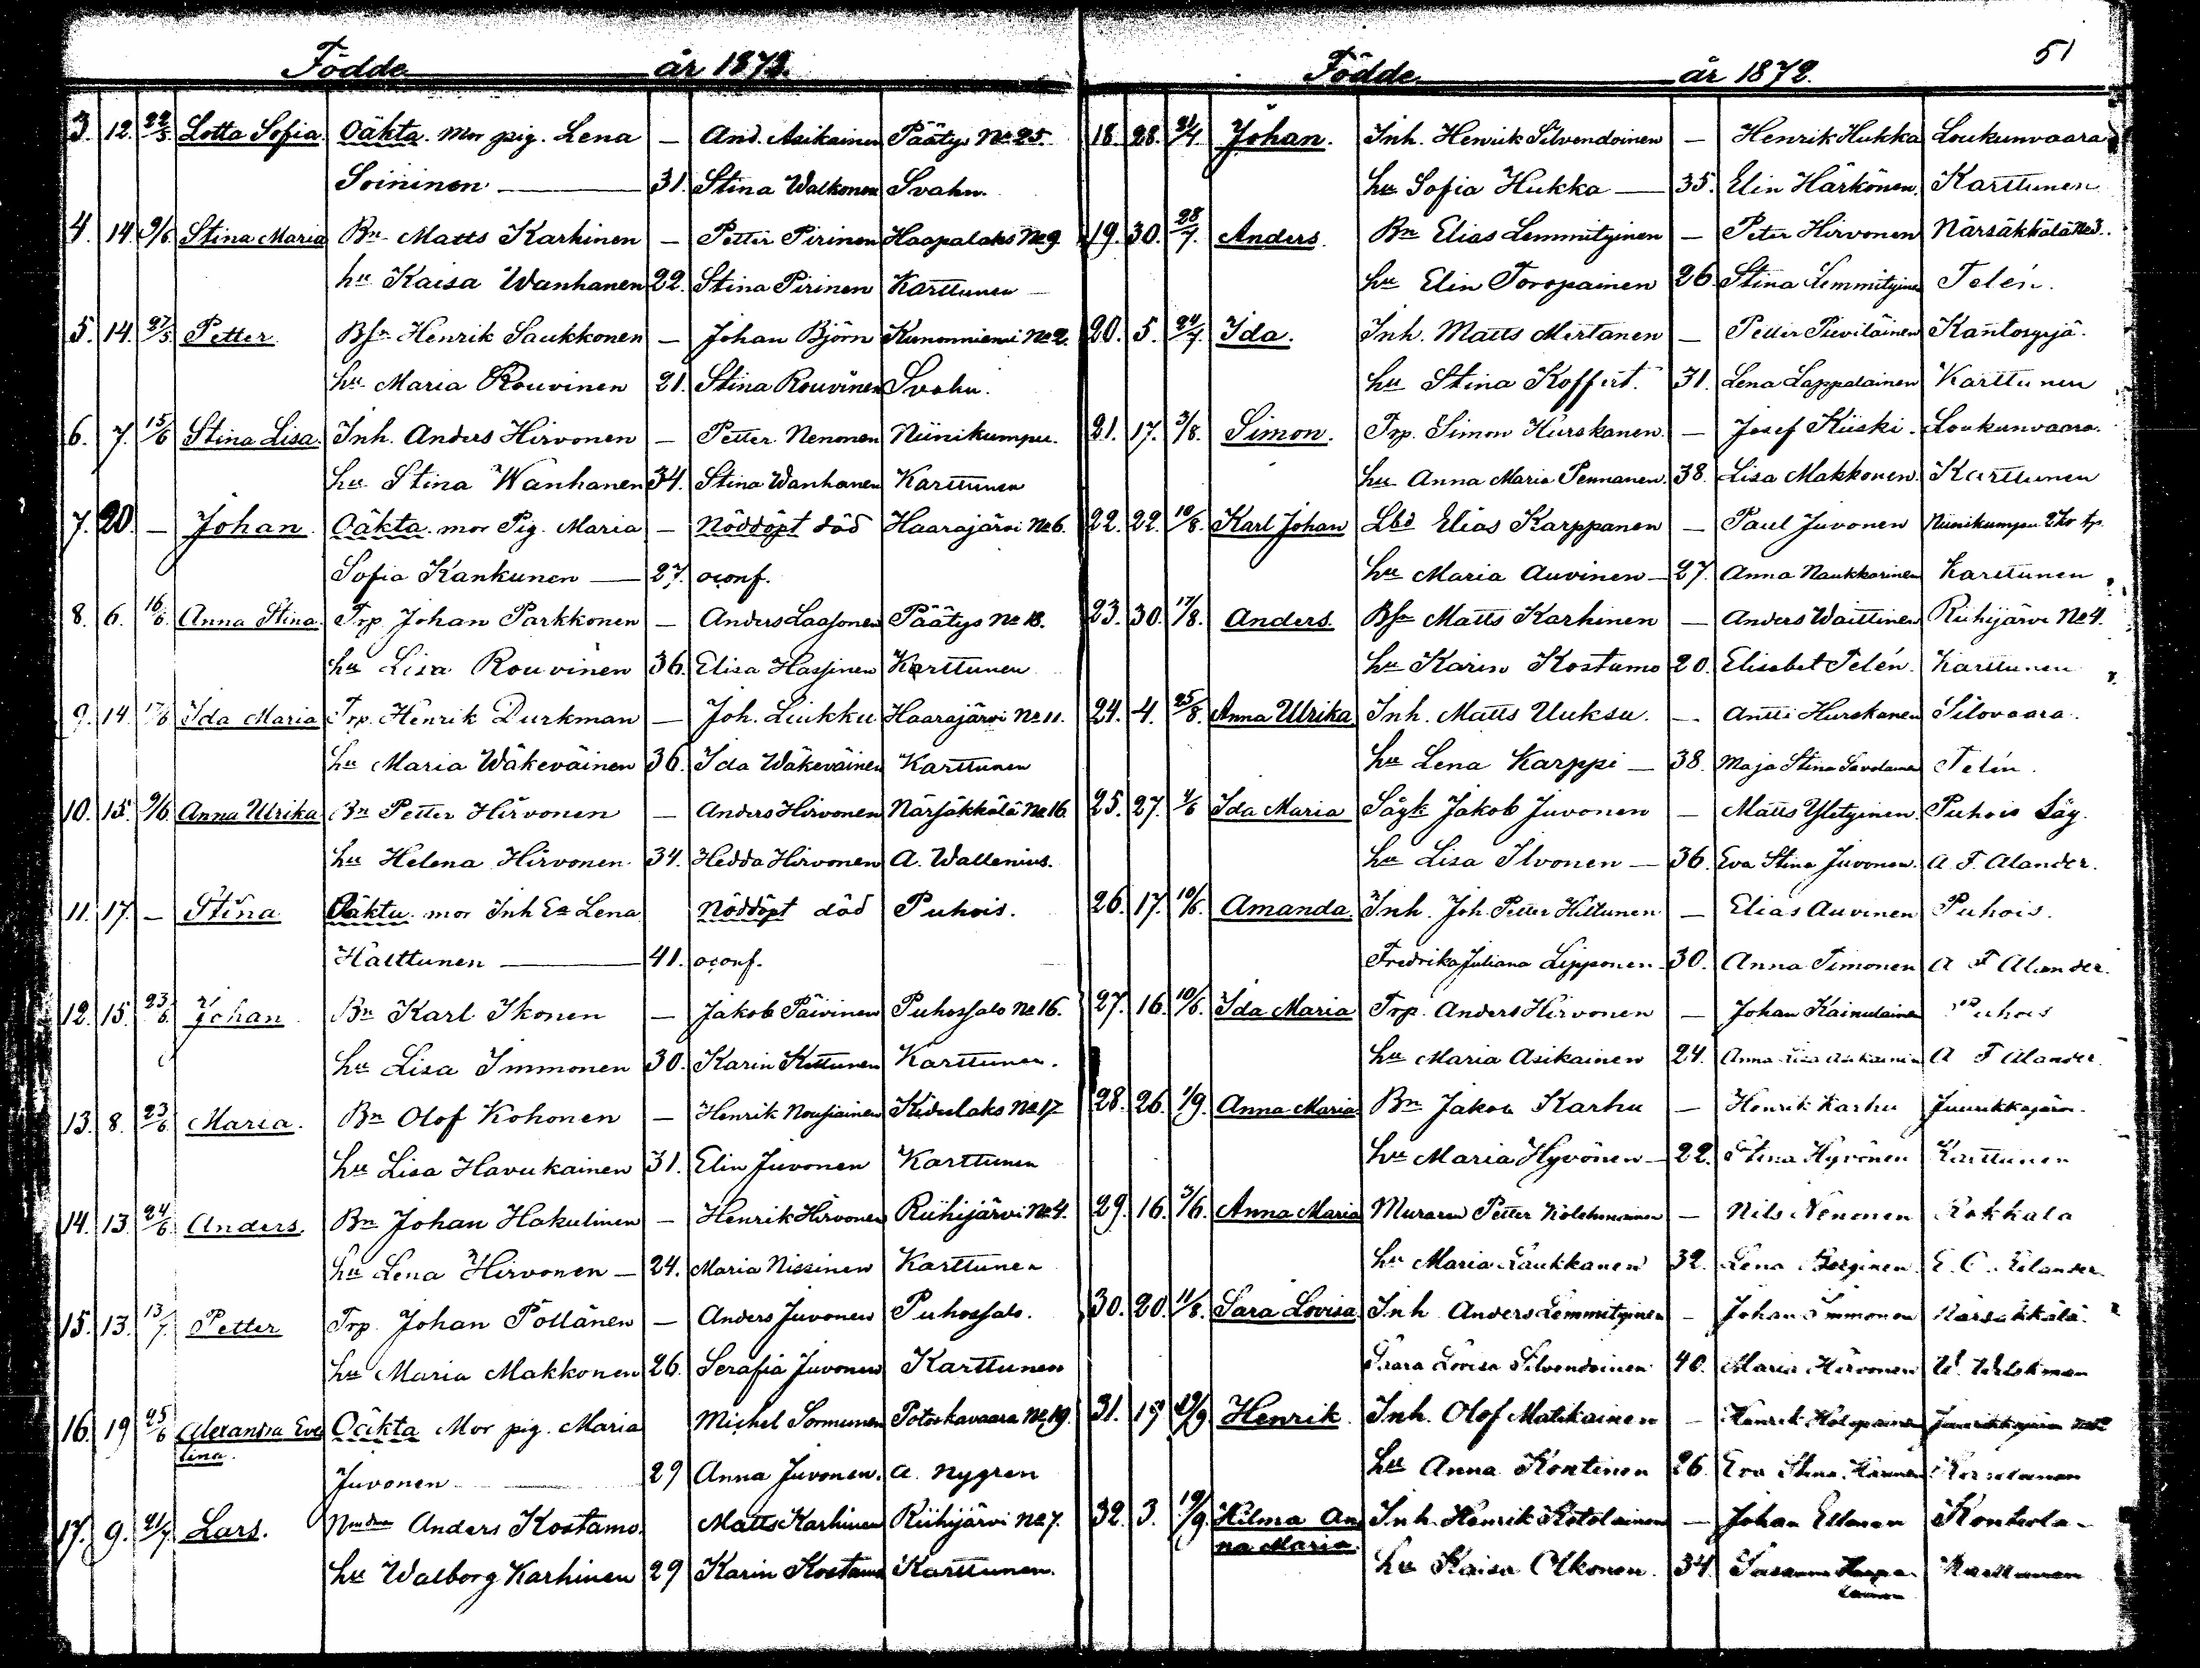 Födde år 1872.
3. 12. 22/5 Lotta Sofia. Oäkta. Mor pig. Lena — And. Asikainen Päätys No 25.
Soininen — 31. Stina Walkonen Svahn.
4. 14. 9/6 Stina Maria Bn Matts Karhinen — Petter Pirinen Haapalaks No 9.
hu Kaisa Wanhanen 22. Stina Pirinen Karttunen
5. 14. 27/5 Petter Bsn Henrik Saukkonen — Johan Björn Kunonniemi No 2.
hu Maria Rouvinen 21. Stina Rouvinen Svahn.
6. 7. 15/6 Stina Lisa. Inh. Anders Hirvonen — Petter Nenonen Niinikumpu.
hu Stina Wanhanen 34. Stina Wanhanen Karttunen
7. 20. — Johan Oäkta. mor Pig. Maria — Nöddöpt död Haarajärvi No 6.
Sofia Kankunen — 27. oconf.
8. 6. 16/6. Anna Stina. Trp. Johan Parkkonen — Anders Laasonen Päätys No 18.
hu Lisa Rouvinen 36. Elisa Hassinen Karttunen
9. 14. 17/6 Ida Maria Trp. Henrik Durkman — Joh. Liukku Haarajärvi No 11.
hu Maria Wäkeväinen 36. Ida Wäkeväinen Karttunen
10. 15. 9/6. Anna Ulrika Bn Petter Hirvonen — Anders Hirvonen Närsäkkälä No 16.
hu Helena Hirvonen. 34. Hedda Hirvonen A. Wallenius.
11. 17. — Stina Oäkta. mor Inh Ea Lena Nöddöpt död Puhois.
Halttunen — 41. oconf.
12. 15. 23/6. Johan Bn Karl Ikonen — Jakob Päivinen Puhossalo No 16.
hu Lisa Immonen 30. Karin Kettunen Karttunen.
13. 8. 23/6. Maria. Bn Olof Kohonen — Henrik Nousiainen Kideelaks No 17
hu Lisa Havukainen 31. Elin Juvonen Karttunen
14. 13. 24/6. Anders. Bn Johan Hakulinen — Henrik Hirvonen Riihijärvi No 4.
hu Lena Hirvonen — 24. Maria Nissinen Karttunen
15. 13. 13/7. Petter Trp. Johan Pöllänen — Anders Juvonen Puhossalo.
hu Maria Makkonen 26. Serafia Juvonen Karttunen
16. 19 25/6 Alexandra Eve Oäkta Mor pig. Maria Michel Sormunen Potoskavaara No 19.
lina.
Juvonen 29 Anna Juvonen. A. Nygren
17. 9. 21/7 Lars. Anders Kostamo. Matts Karhinen Riihijärvi No 7.
hu Walborg Karhinen 29 Karin Kostamo Karttunen.
51
Födde år 1872.
18. 28. 21/7. Johan. Inh. Henrik Silvendoinen — Henrik Hukka Loukunvaara
hu Sofia Hukka — 35. Elin Härkönen. Karttunen
19. 30. 28/7. Anders. Bn Elias Lemmityinen — Peter Hirvonen Närsäkkälä No 3.
hu Elin Toropainen 26 Stina Lemmityinen Telén.
20. 5. 24/7. Ida. Inh. Matts Mertanen — Petter Pieviläinen Kantosyrjä.
hu Stina Koffert. 31. Lena Lappalainen Karttunen
21. 17. 3/8. Simon. Trp. Simon Hurskanen. — Josef Kiiski. Loukunvaara.
hu Anna Maria Pennanen. 38. Lisa Makkonen. Karttunen
22. 22. 10/8. Karl Johan Lbd Elias Karppanen — Paul Juvonen Niinikumpu
hu Maria Auvinen — 27. Anna Naukkarinen Karttunen
23. 30. 17/8. Anders. Bsn Matts Karhinen — Anders Waittinen Riihijärvi No 4.
hu Karin Kostamo 20. Elisabet Telén. Karttunen
24. 4. 25/8. Anna Ulrika Inh. Matts Uuksu. — Antti Hurskanen Silovaara.
hu Lena Karppi — 38. Maja Stina Savolainen Telén.
25. 27. 4/6 Ida Maria Sågk Jakob Juvonen — Matts Ylityinen. Puhois Såg.
hu Lisa Ilvonen — 36. Eva Stina Juvonen. A. F. Alander.
26. 17. 10/6. Amanda. Inh. Joh. Petter Hiltunen — Elias Auvinen Puhois.
Fredrika Juliana Lipponen. 30. Anna Timonen A F Alander.
27. 16. 10/6. Ida Maria Trp. Anders Hirvonen — Johan Kainulainen Puhois
hu Maria Asikainen 24. Anna Lisa Asikainen A F Alander.
28. 26. 1/9. Anna Maria Bn Jakob Karhu — Henrik Karhu Juurikkajärvi.
hu Maria Hyvönen — 22. Stina Hyvönen Karttunen
29. 16. 3/6. Anna Maria Muraren Petter Kolehmainen — Nils Nenonen Rokkala
hu Maria Laukkanen 32. Lena
30. 20. 11/8. Sara Lovisa Inh Anders Lemmityinen — Johan Immonen Närsäkkälä.
Saara Lovisa Silvendoinen 40. Maria Hirvonen
31. 17 Henrik. Inh. Olof Matikainen — Henrik Holopainen
hu Anna Kontinen 26. Eva Stina
32. 3. 19/9. Hilma An Inh. Henrik Kotolainen — Johan Ellonen Kontiola
na Maria.
hu Kaisa Olkonen. 34. Karttunen